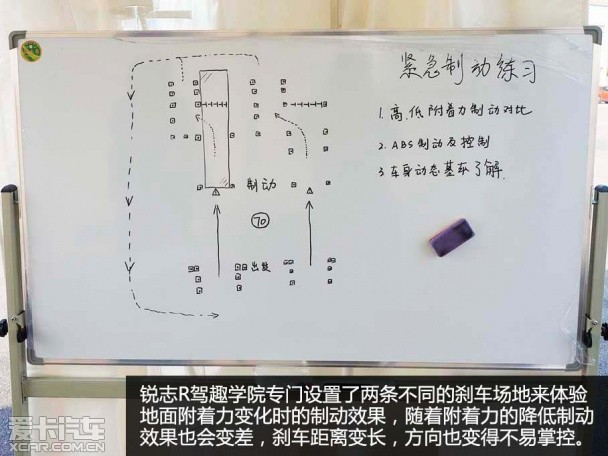 紧急制动练习
1.高.低附着力制动对比
2.ABS制动及控制
3车身动态基本了解.
制动
70
出发
锐志R驾趣学院专门设置了两条不同的刹车场地来体验
地面附着力变化时的制动效果，随着附着力的降低制动
效果也会变差，刹车距离变长，方向也变得不易掌控。
爱卡汽车
XCAR.COM.CN